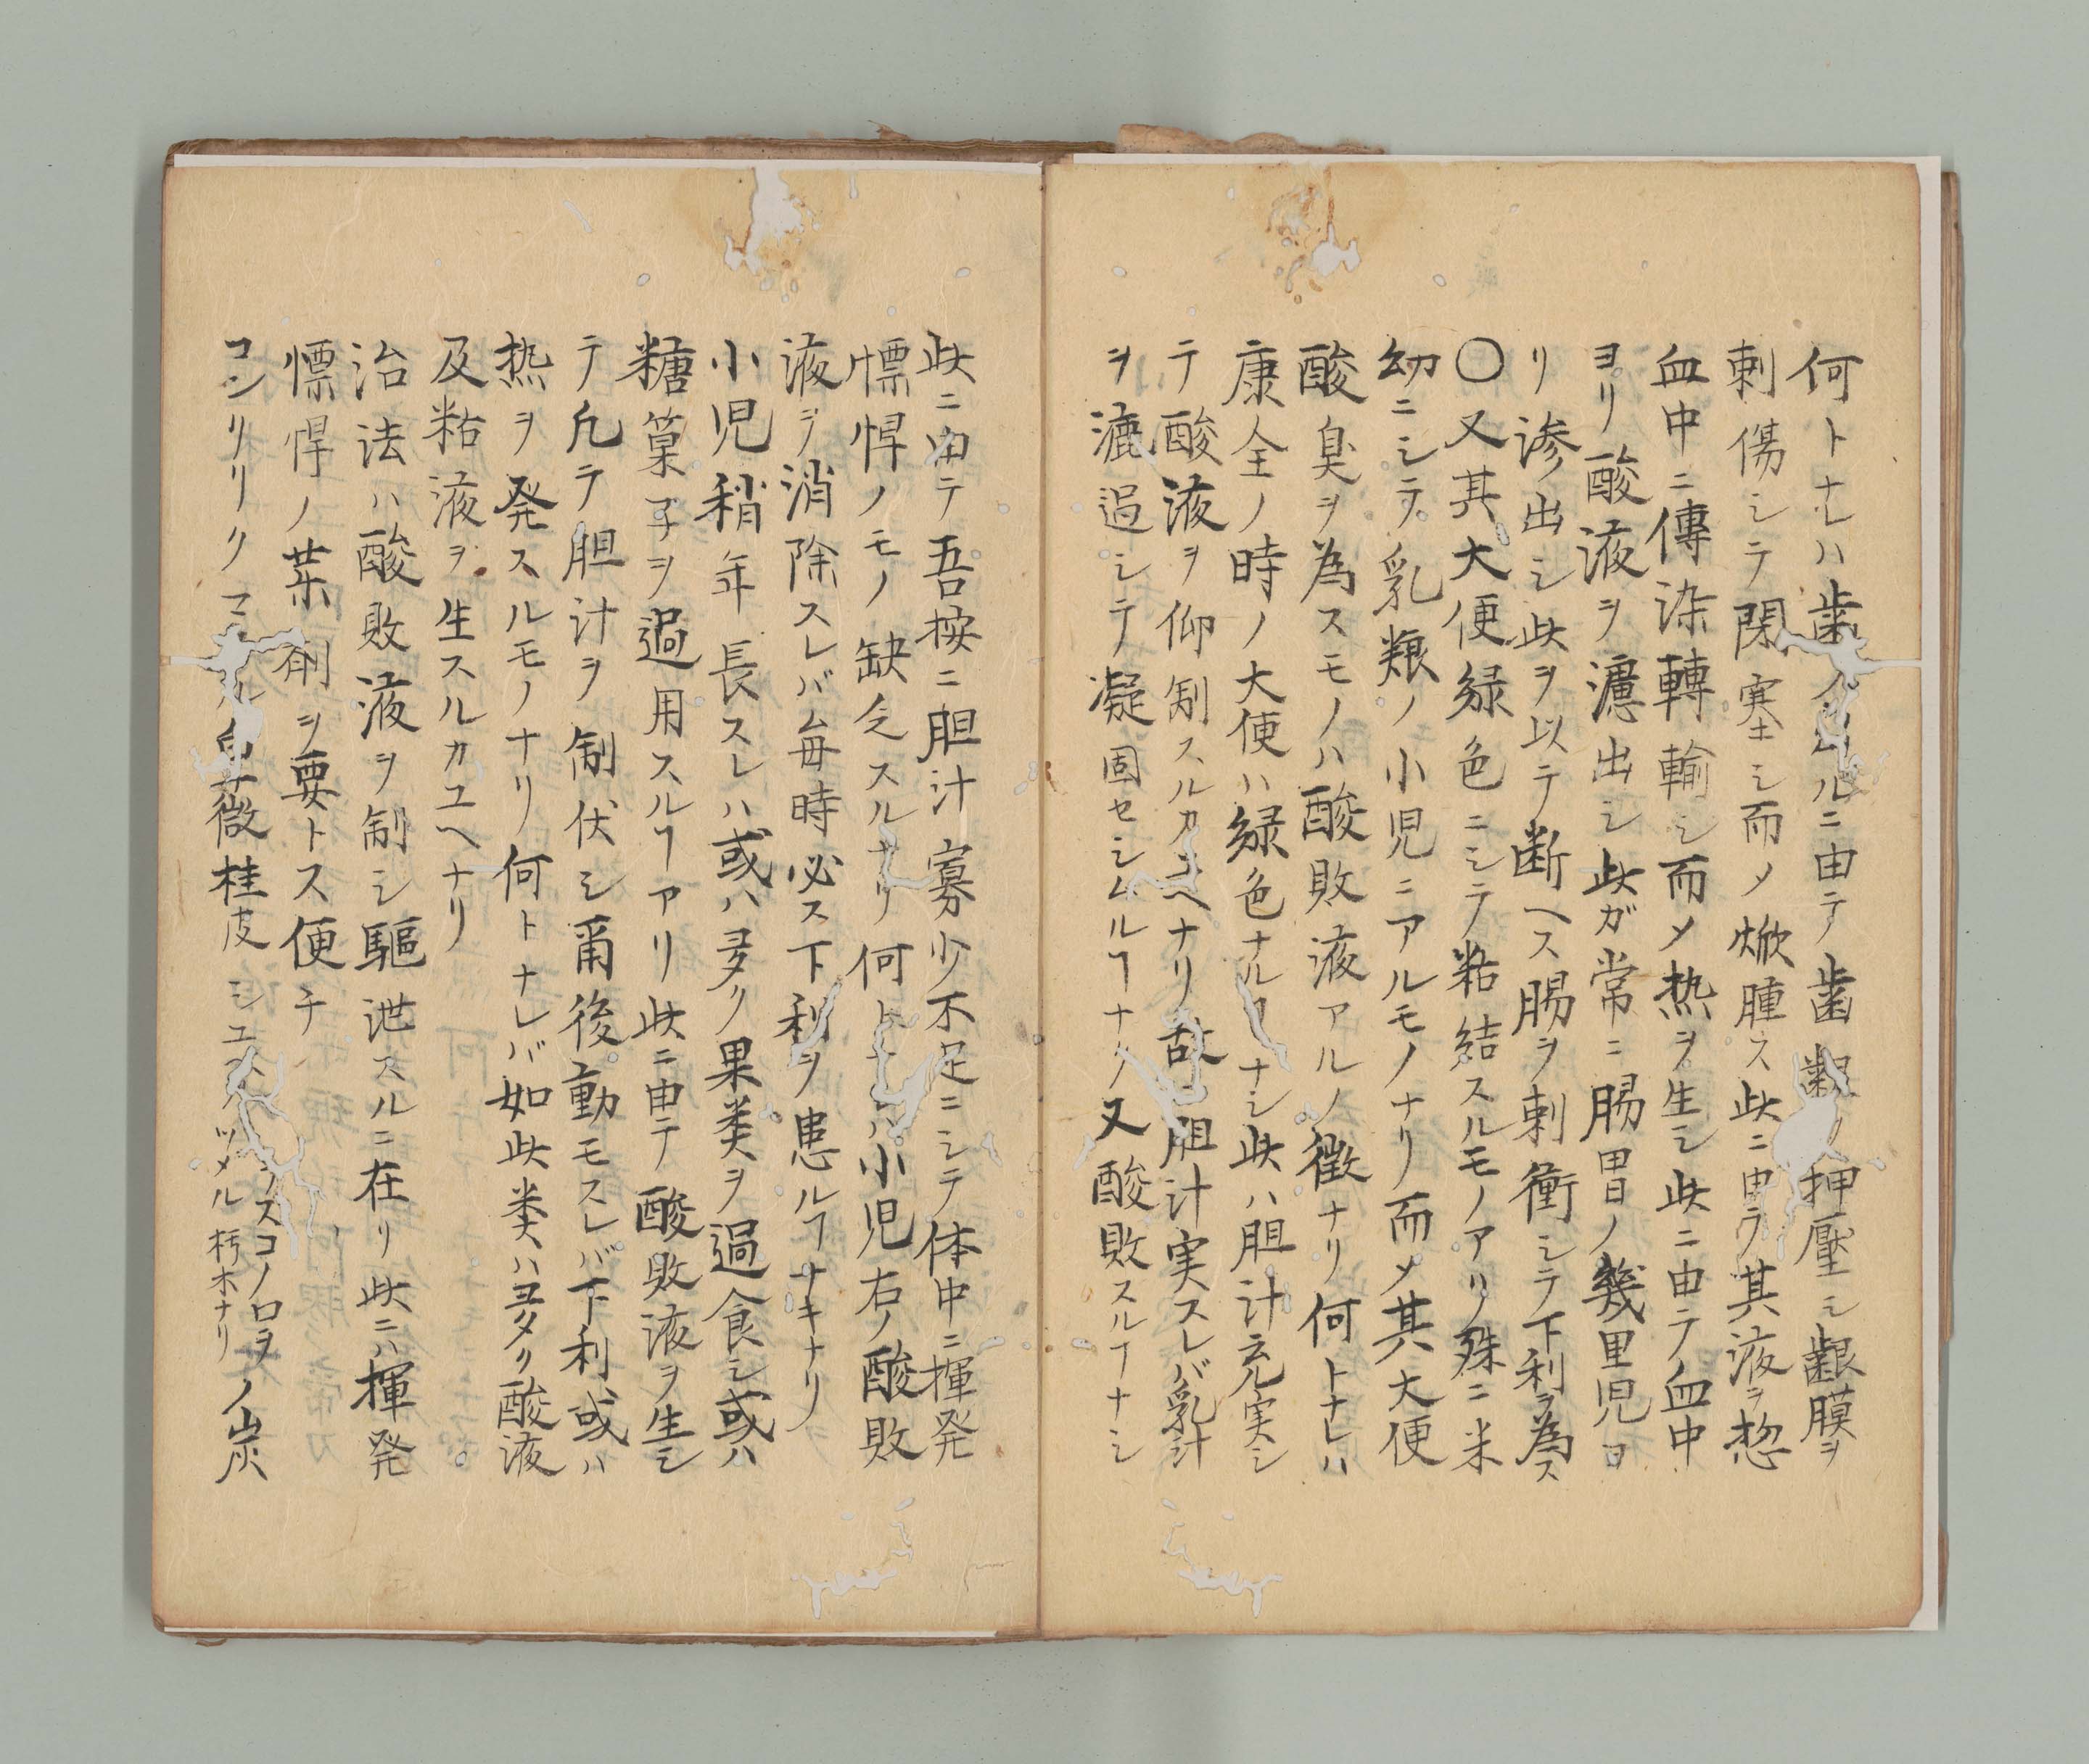 何トナレハ歯ノ出ルニ由テ歯齦ノ押壓シ齦膜ヲ
刺傷シテ閉塞シ而メ焮腫ス此ニ由テ其液ヲ惣
血中ニ傳染轉輸シ而メ热ヲ生シ此ニ由テ血中
ヨリ酸液ヲ濾出シ此ガ常ニ腸胃ノ幾里児ヨ
リ渗出シ此ヲ以テ断ヘス腸ヲ刺衝シテ下利ヲ為ス
〇又其大便緑色ニシテ粘結スルモノアリ殊ニ米
幼ニシテ乳粮ノ小児ニアルモノナリ而メ其大便
酸臭ヲ為スモノハ酸敗液アルノ徴ナリ何トナレハ
康全ノ時ノ大便ハ緑色ナルヿナシ此ハ胆汁充実シ
テ酸液ヲ仰制スルカユヘナリ故ニ胆汁実スレバ乳汁
ヲ漉過シテ凝固セシムルヿナク又酸敗スルヿナシ
此ニ由テ吾按ニ胆汁寡少不足ニシテ体中ニ揮発
慓悍ノモノ缺乏スルナリ何トナレハ小児右ノ酸敗
液ヲ消除スレバ毎時必ス下利ヲ患ルヿナキナリ
小児稍年長スレハ或ハ多ク果类ヲ過食シ或ハ
糖菓子ヲ過用スルヿアリ此ニ由テ酸敗液ヲ生シ
テ凢テ胆汁ヲ制伏シ爾後動モスレバ下利或ハ
热ヲ発スルモノナリ何トナレバ如此类ハ多ク酸液
及粘液ヲ生スルカユヘナリ
治法ハ酸敗液ヲ制シ驅泄スルニ在リ此ニハ揮発
慓悍ノ葉剤ヲ要トス便チ
コンリリクマ ル白薇桂皮シユ ツメル朽木ナリ スコノロヲノ炭